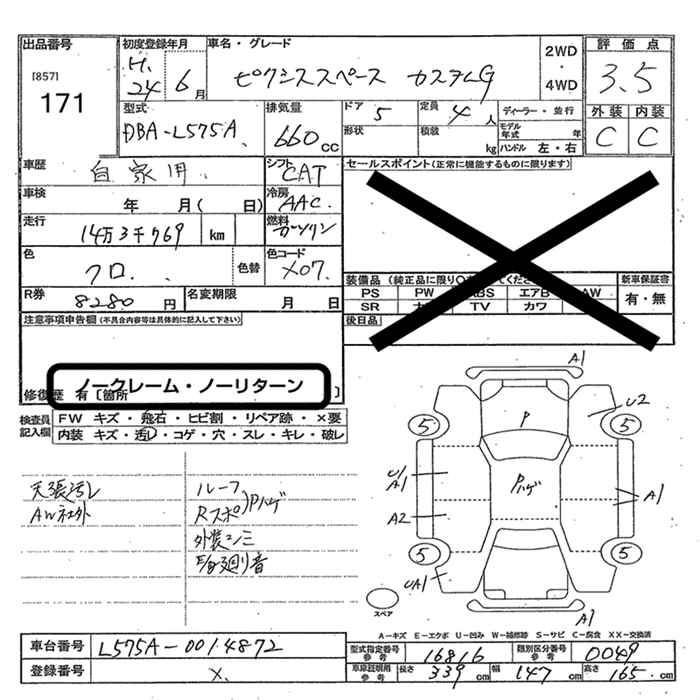 出品番号 初度登録年月 車名・グレード 評価点
[857] 171
H.24 6月 ピクシススペース カスタムG
2WD・4WD
3.5
型式 排気量 ドア 定員 ディーラー・並行 外装 内装
DBA-L575A 660cc 5 4人 C C
形状 積載 kg モデル年式 年 ハンドル 左・右
車歴 自家用 シフト CAT
セールスポイント(正常に機能するものに限ります)
車検 年 月( 日) 冷房 AAC
走行 14万3千769 km 燃料 ガソリン
色 クロ. 色替 色コード X07.
装備品(純正品に限り○ てください) 新車保証書
PS PW ABS エアB AW 有・無
SR TV カワ
R券 8280円 名変期限 月 日
後日品
注意事項申告欄(不具合内容等は具体的に記入して下さい)
ノークレーム・ノーリターン
修復歴 有〔箇所 〕
検査員記入欄 FW キズ・飛石・ヒビ割・リペア跡・×要
内装 キズ・汚レ・コゲ・穴・スレ・キレ・破レ
天張汚レ
AW社外
ルーフ
Rスポ)Pハゲ
外装シミ
F/廻り音
A1
U2
P
5 5
U/A1
Pハゲ
A1
A2
5 5
UA1
スペア
A1
A-キズ E-エクボ U-凹み W-補修跡 S-サビ C-腐食 XX-交換済
車台番号 L575A-0014872
型式指定番号参考 16816 類別区分番号参考 0049
登録番号 X.
車庫証明用参考 長さ 339cm 幅 147cm 高さ 165.cm